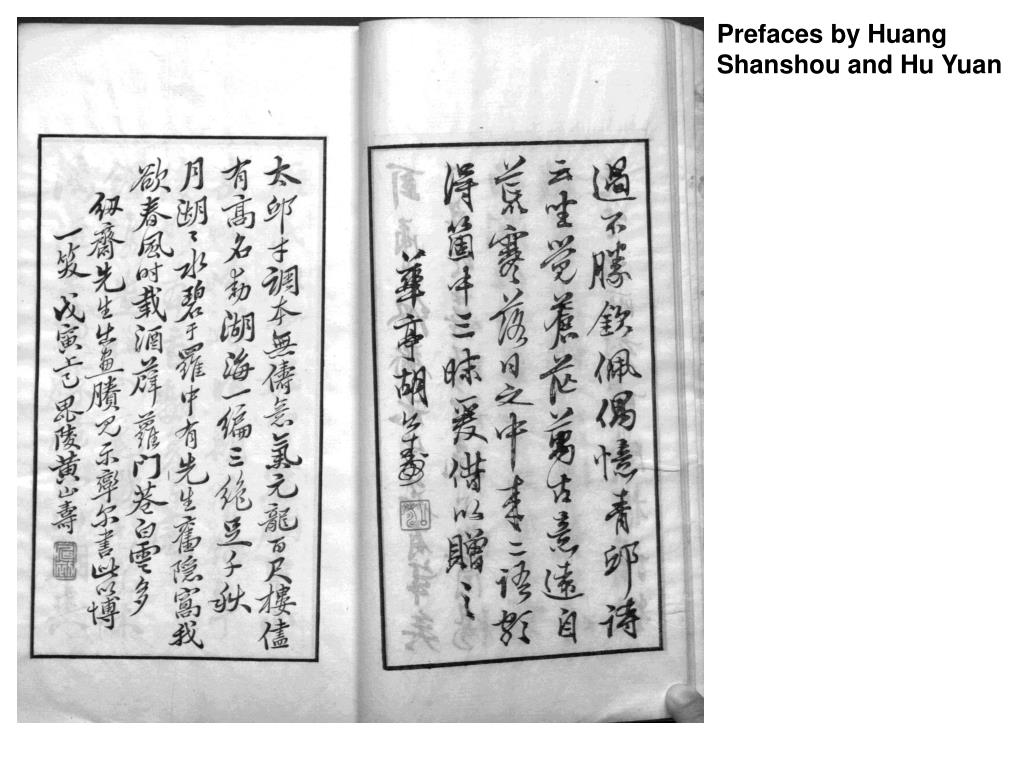 Prefaces by Huang
Shanshou and Hu Yuan
過不勝欽佩偶憶青邱詩
云坐覺蒼茫萬古意遠自
荒寒落日之中來二語頗
得箇中三昧爰借以贈之
華亭胡公壽
太邱才調本無儔意氣元龍百尺樓儘
有高名動湖海一編三絕足千秋
月湖〻水碧于羅中有先生舊隱窩我
欲春風时載酒薜蘿门巷白雲多
紉齋先生出畫賸見示率尔書此以博
一笑 戊寅上巳毘陵黄山壽